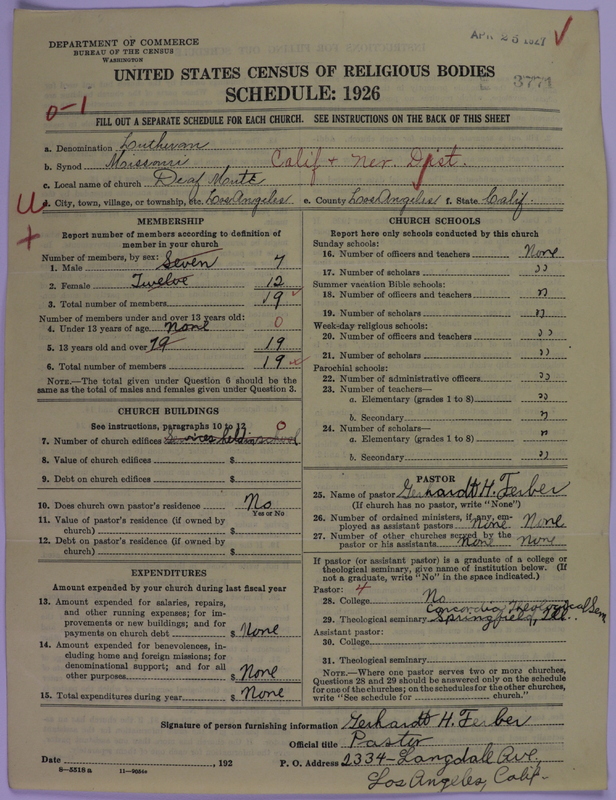 DEPARTMENT OF COMMERCE
BUREAU OF THE CENSUS
WASHINGTON
APR 25 1927
UNITED STATES CENSUS OF RELIGIOUS BODIES
SCHEDULE: 1926
3774
0-1
FILL OUT A SEPARATE SCHEDULE FOR EACH CHURCH. SEE INSTRUCTIONS ON THE BACK OF THIS SHEET
a. Denomination Lutheran
b. Synod Missouri Calif + Nev. Dist.
c. Local name of church Deaf Mute
d. City, town, village, or township, etc. Los Angeles e. County Los Angeles f. State Calif.
U
+
MEMBERSHIP
Report number of members according to definition of
member in your church
Number of members, by sex:
1. Male Seven 7
2. Female Twelve 12
3. Total number of members 19
Number of members under and over 13 years old:
4. Under 13 years of age None 0
5. 13 years old and over 19 19
6. Total number of members 19
NOTE.—The total given under Question 6 should be the
same as the total of males and females given under Question 3.
CHURCH BUILDINGS
See instructions, paragraphs 10 to 12
7. Number of church edifices Services held in school 0
8. Value of church edifices $
9. Debt on church edifices $
10. Does church own pastor's residence No
Yes or No
11. Value of pastor's residence (if owned by
church) $
12. Debt on pastor's residence (if owned by
church) $
EXPENDITURES
Amount expended by your church during last fiscal year
13. Amount expended for salaries, repairs,
and other running expenses; for im-
provements or new buildings; and for
payments on church debt $ None
14. Amount expended for benevolences, in-
cluding home and foreign missions; for
denominational support; and for all
other purposes $ None
15. Total expenditures during year $ None
CHURCH SCHOOLS
Report here only schools conducted by this church
Sunday schools:
16. Number of officers and teachers None
17. Number of scholars ,,
Summer vacation Bible schools:
18. Number of officers and teachers ,,
19. Number of scholars ,,
Week-day religious schools:
20. Number of officers and teachers ,,
21. Number of scholars ,,
Parochial schools:
22. Number of administrative officers ,,
23. Number of teachers—
a. Elementary (grades 1 to 8) ,,
b. Secondary ,,
24. Number of scholars—
a. Elementary (grades 1 to 8) ,,
b. Secondary ,,
PASTOR
25. Name of pastor Gerhardt H. Ferber
(If church has no pastor, write "None")
26. Number of ordained ministers, if any, em-
ployed as assistant pastors None None
27. Number of other churches served by the
pastor or his assistants None None
If pastor (or assistant pastor) is a graduate of a college or
theological seminary, give name of institution below. (If
not a graduate, write "No" in the space indicated.)
Pastor: 4
28. College No
Concordia Theological Sem
29. Theological seminary Springfield, Ill.
Assistant pastor:
30. College
31. Theological seminary
NOTE.—Where one pastor serves two or more churches,
Questions 28 and 29 should be answered only on the schedule
for one of the churches; on the schedules for the other churches,
write "See schedule for church."
Signature of person furnishing information Gerhardt H. Ferber
Official title Pastor
Date , 192 P. O. Address 2334-Langdale Ave.
8-5518a 11-9084 Los Angeles, Calif.